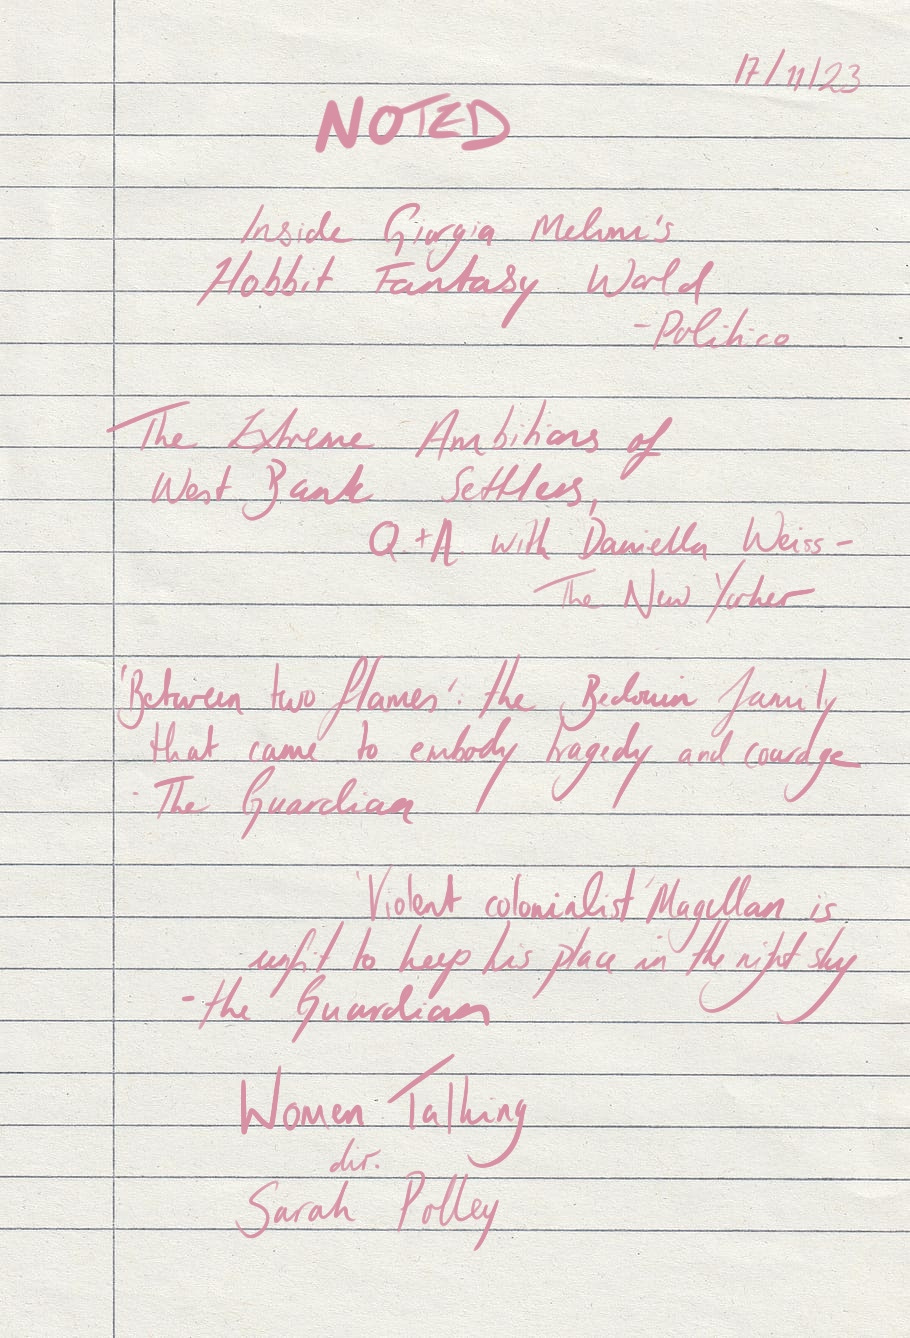 17/11/23
NOTED
Inside Giorgia Meloni's
Hobbit Fantasy World
- Politico
The Extreme Ambitions of
West Bank Settlers,
Q + A with Daniella Weiss -
The New Yorker
'Between two flames': the Bedouin family
that came to embody tragedy and courage
- The Guardian
'Violent colonialist' Magellan is
unfit to keep his place in the night sky
- the Guardian
Women Talking
dir.
Sarah Polley